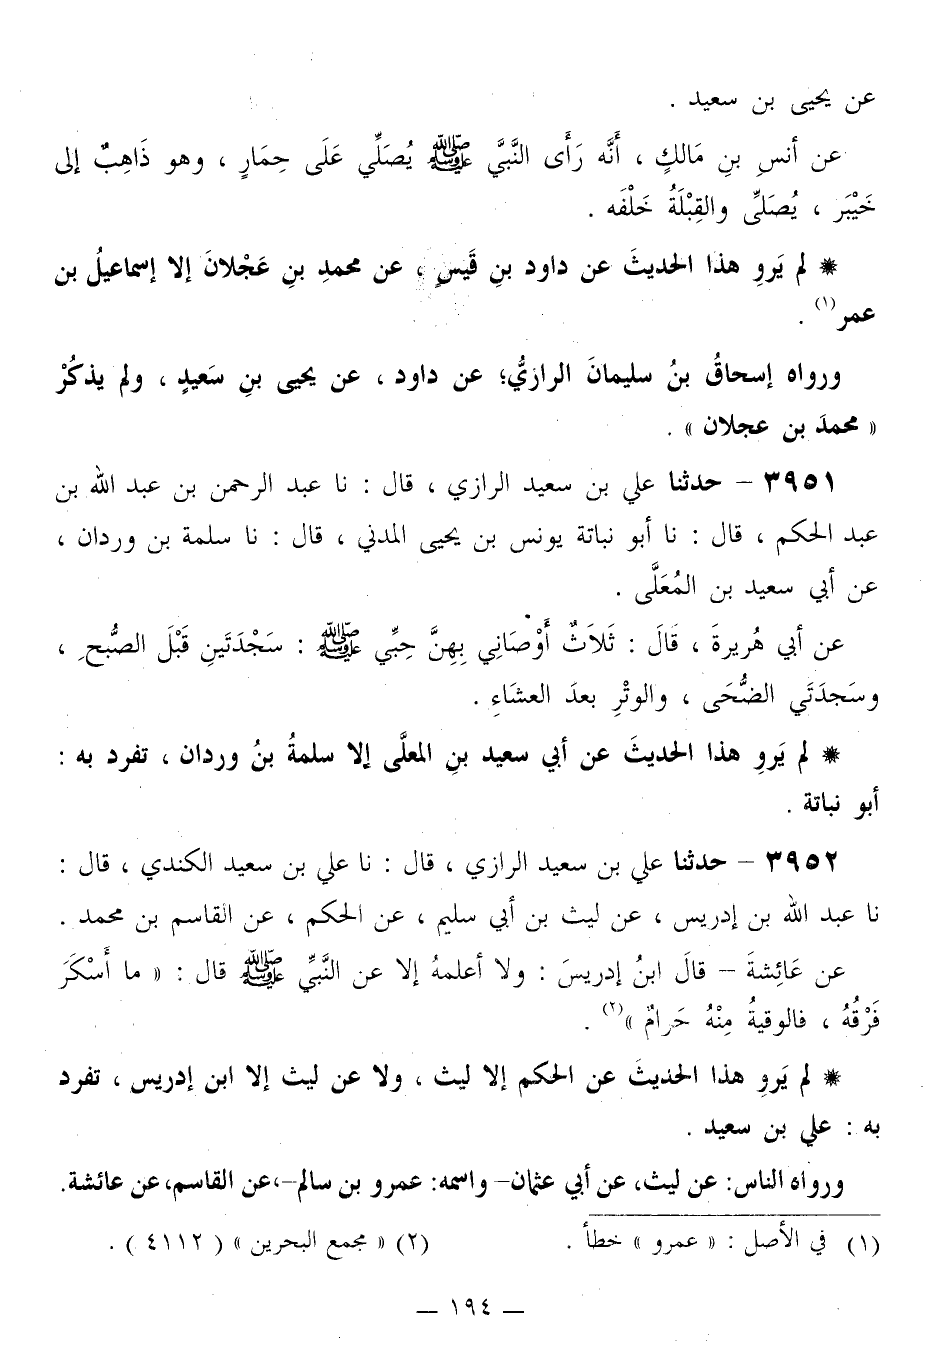 عن يحيى بن سعيد .
عن أنسِ بنِ مَالكٍ ، أَنَّه رَأَى النَّبيَّ ﷺ يُصَلِّي عَلَى حِمَارٍ ، وهو ذَاهِبٌ إلى
خَيْبَر ، يُصَلِّى والقِبْلَةُ خَلْفَه .
* لم يَروِ هذا الحديثَ عن داود بنِ قَيسٍ ، عن محمدِ بنِ عَجْلانَ إلا إسماعيلُ بن
عمر(١) .
ورواه إسحاقُ بنُ سليمانَ الرازيُّ؛ عن داود ، عن يحيى بنِ سَعيدٍ ، ولم يذكُرْ
« محمدَ بن عجلان » .
٣٩٥١ – حدثنا علي بن سعيد الرازي ، قال : نا عبد الرحمن بن عبد الله بن
عبد الحكم ، قال : نا أبو نباتة يونس بن يحيى المدني ، قال : نا سلمة بن وردان ،
عن أبي سعيد بن المُعَلَّى .
عن أبي هُريرةَ ، قَالَ : ثَلاَثٌ أَوْصَانِي بِهِنَّ حِبِّي ﷺ : سَجْدَتَينِ قَبْلَ الصُّبحِ ،
وسَجدَتَي الضُّحَى ، والوتْرِ بعدَ العشَاءِ .
* لم يَروِ هذا الحديثَ عن أبي سعيد بنِ المعلَّى إلا سلمةُ بنُ وردان ، تفرد به :
أبو نباتة .
٣٩٥٢ – حدثنا علي بن سعيد الرازي ، قال : نا علي بن سعيد الكندي ، قال :
نا عبد الله بن إدريس ، عن ليث بن أبي سليم ، عن الحكم ، عن القاسم بن محمد .
عن عَائِشةَ – قالَ ابنُ إدريسَ : ولا أعلمهُ إلا عن النَّبيِّ ﷺ قال : « ما أَسْكَرَ
فَرْقُهُ ، فالوقيةُ مِنْهُ حَرامٌ »(٢) .
* لم يَروِ هذا الحديثَ عن الحكم إلا ليث ، ولا عن ليث إلا ابن إدريس ، تفرد
به : علي بن سعيد .
ورواه الناس: عن ليث، عن أبي عثمان– واسمه: عمرو بن سالم–،عن القاسم، عن عائشة.
(١) في الأصل : « عمرو » خطأ .
(٢) « مجمع البحرين » ( ٤١١٢ ) .
— ١٩٤ —